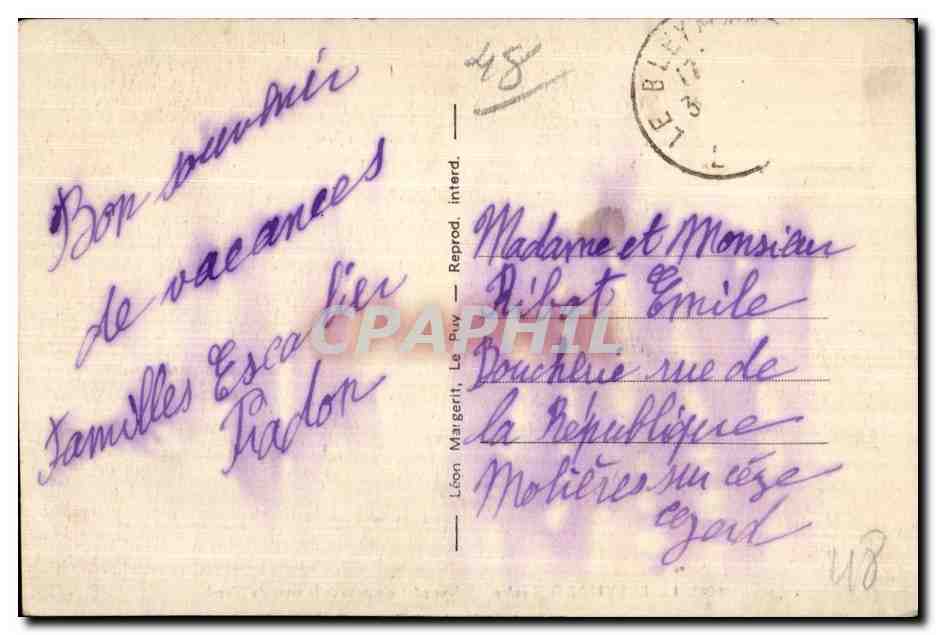 Bon souvenir
de vacances
Familles Escalier
Pradon
Léon Margerit, Le Puy — Reprod. interd.
48
LE BLEYMARD
12
3
Madame et Monsieur
Ribot Emile
Boucherie rue de
la République
Molières sur cèze
Gard
48
CPAPHIL